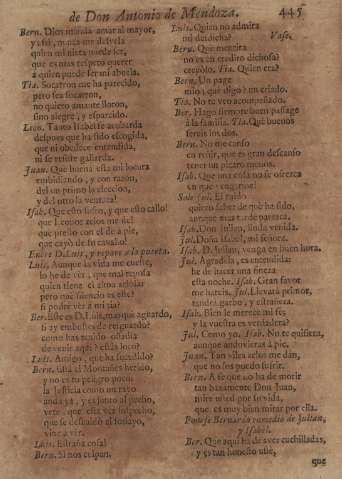 de Don Antonio de Mendoza. 445
Bern. Dios manda amar al mayor,
y así, nunca me desvela
quien
que es mas respeto querer
à quien puede ser mi abuela.
Tia. Socarron me ha parecido,
pero sea socarron,
no quiero amante lloron,
sino alegre, y esparcido.
Leon. Tanta Isabel se
despues que ha sido escogida,
que ni obedece entendida,
ni se resiste gallarda.
Juan. Que buena está mi locura
embidiando, y con razon,
del un primo la eleccion,
y del otro la ventura!
Isab. Que esto sufro, y que esto callo!
que Leonor zelos me dè!
que pleito con el de à pie,
que cayò de su cavallo!
Entre D. Luis, y repara à la puerta.
Luis. Aunque la vista me cueste,
lo he de ver, que mal reposa
quien tiene el alma zelosa;
pero que silencio es este?
si podrè ver à mi tia?
Ber. Este es D. Luis, mas qui aguardo,
si ay embustes de resguardo?
como has tenido osadia
de venir aqui? estàs loco?
Luis. Amigo, què ha sucedido?
Bern. Està el Montañès herido,
y no es tu peligro poco;
la Justicia como un rayo
anda yà, y es justo al pecho,
vete, que està con sospecho,
que se desmaliò el
vine à vèr.
Luis. Estraña cosa!
Bern. Si nos culpan.
Luis. Quien no admira
mi desdicha? Vase.
Bern. Que mentira
no es en credito dichosa?
creyòlo. Tia. Quien era?
Bern. Un page
mio, què digo? en criado.
Tia. No te veo acompañado.
Ber. Hago siempre buen passage
à la familia. Tia. Què buenos
sereis los dos.
Bern. No me canso
en reñir, que es gran descanso
tener un picaro menos.
Isab. Que una cosa no se ofrezca
en que
Sale Jul. El ruido
quiero saber de què ha sido,
aunque mas tarde parezca.
Isab. Don Julian, linda venida.
Jul. Doña Isabel, mi señora.
Isab. D. Julian, venga en buen hora.
Jul. Agradela, es entendida:
he de hazer una fineza
esta noche. Isab. Gran favor
me hareis. Jul. Llevarà primor,
garvo, y estrañeza.
Isab. Bien le merece mi fe;
y la vuestra es verdadera?
Jul. Como yo. Isab. No te quisiera,
aunque anduvieras à pie.
Juan. Tan viles zelos me dàn,
que no los puedo sufrir.
Bern. A fè que no ha de morir
tan baxamente Don Juan,
mire usted por su vida,
que es muy bien mirar por ella.
Ponese Bernardo enmedio de Julian,
y Isabel.
Ber. Que aqui ha de aver cuchilladas,
y es tan honesto
que